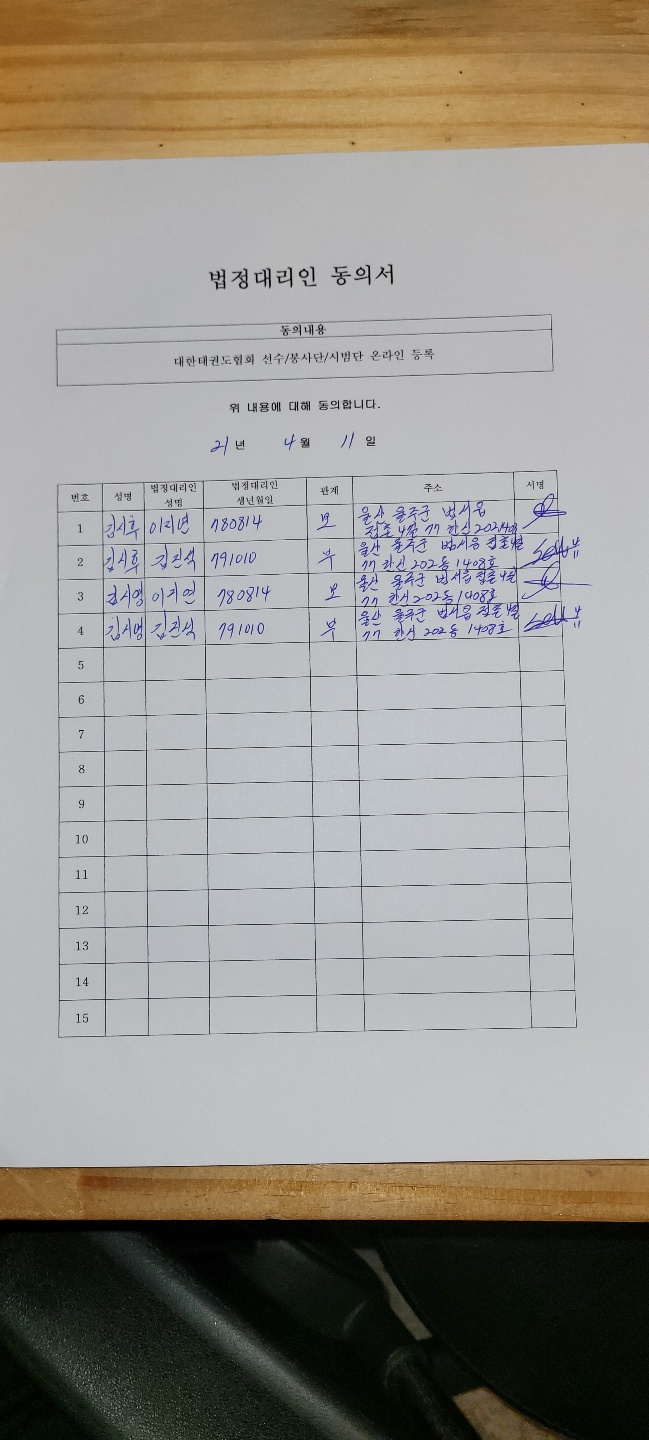 법정대리인 동의서
동의내용
대한태권도협회 선수/봉사단/시범단 온라인 등록
위 내용에 대해 동의합니다.
21년 4월 11일
번호 성명 법정대리인 성명 법정대리인 생년월일 관계 주소 서명
1 김시후 이지연 780814 모 울산 울주군 범서읍
77 한신
2 김시후 김진석 791010 부 울산 울주군 범서읍
77 한신 202동 1408호
3 김시영 이지연 780814 모 울산 울주군 범서읍
77 한신 202동 1408호
4 김시영 김진석 791010 부 울산 울주군 범서읍
77 한신 202동 1408호
5
6
7
8
9
10
11
12
13
14
15